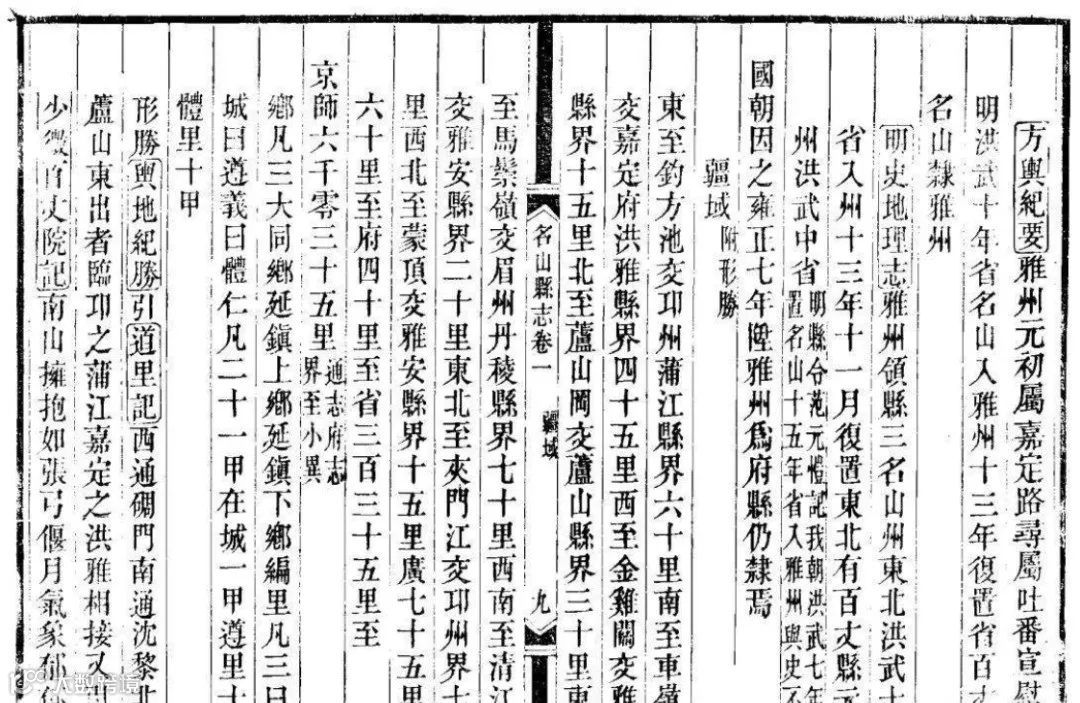 方輿紀要雅州元初屬嘉定路尋屬吐番宣慰
明洪武十年省名山入雅州十三年復置省百丈
名山隸雅州
明史地理志雅州領縣三名山州東北洪武十
省入州十三年十一月復置東北有百丈縣元
州洪武中省明縣令范元禮記我朝洪武七年
置名山十五年省入雅州與史不
國朝因之雍正七年陞雅州爲府縣仍隸焉
疆域附形勝
東至釣方池交邛州蒲江縣界六十里南至車嶺
交嘉定府洪雅縣界四十五里西至金雞關交雅
縣界十五里北至蘆山岡交蘆山縣界三十里東
名山縣志卷一 疆域 九
至馬鬃嶺交眉州丹稜縣界七十里西南至清江
交雅安縣界二十里東北至夾門江交邛州界七
里西北至蒙頂交雅安縣界十五里廣七十五里
六十里至府四十里至省三百三十五里至
京師六千零三十五里通志府志
界至小異
鄉凡三大同鄉延鎮上鄉延鎮下鄉編里凡三曰
城曰遵義曰體仁凡二十一甲在城一甲遵里十
體里十甲
形勝輿地紀勝引道里記西通碉門南通沈黎北
蘆山東出者臨邛之蒲江嘉定之洪雅相接又
少微百丈院記南山擁抱如張弓偃月氣象郁
大數跨境